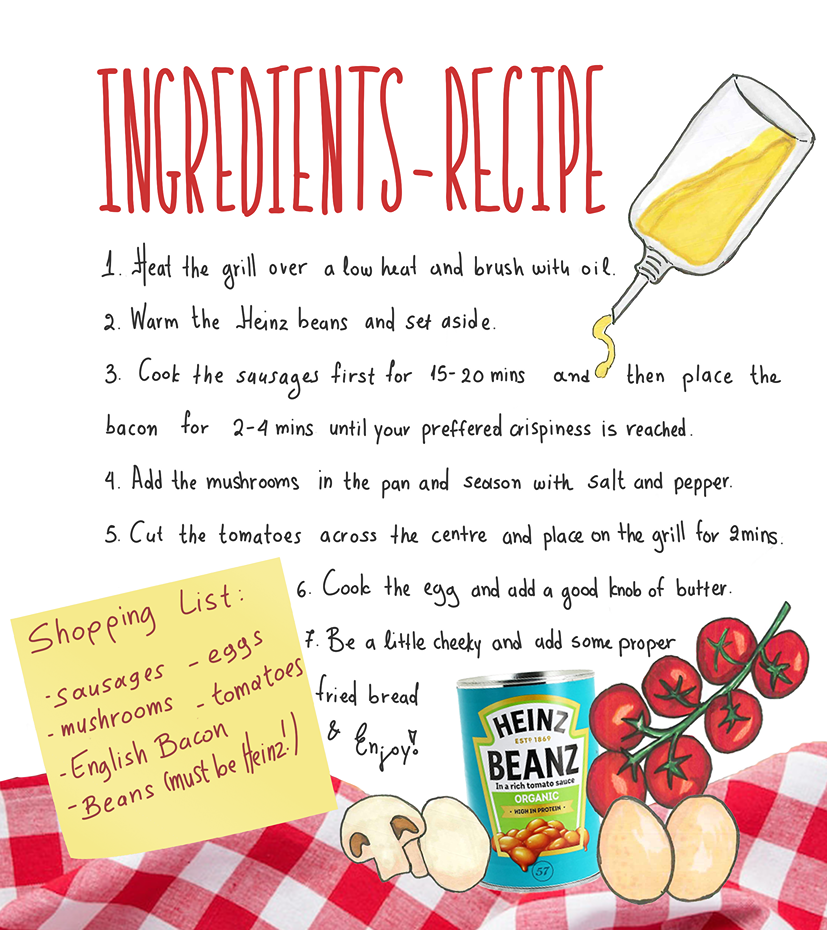 INGREDIENTS-RECIPE
1. Heat the grill over a low heat and brush with oil.
2. Warm the Heinz beans and set aside.
3. Cook the sausages first for 15-20 mins and then place the
bacon for 2-4 mins until your preffered crispiness is reached.
4. Add the mushrooms in the pan and season with salt and pepper.
5. Cut the tomatoes across the centre and place on the grill for 2mins.
6. Cook the egg and add a good knob of butter.
7. Be a little cheeky and add some proper
fried bread
& Enjoy!
Shopping List:
- sausages - eggs
- mushrooms - tomatoes
- English Bacon
- Beans (must be Heinz!)
HEINZ
ESTD 1869
BEANZ
In a rich tomato sauce
ORGANIC
• HIGH IN PROTEIN •
57